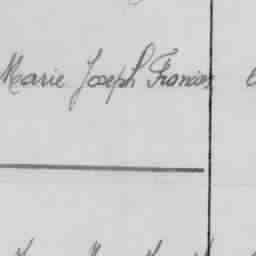 Marie Joseph Francois